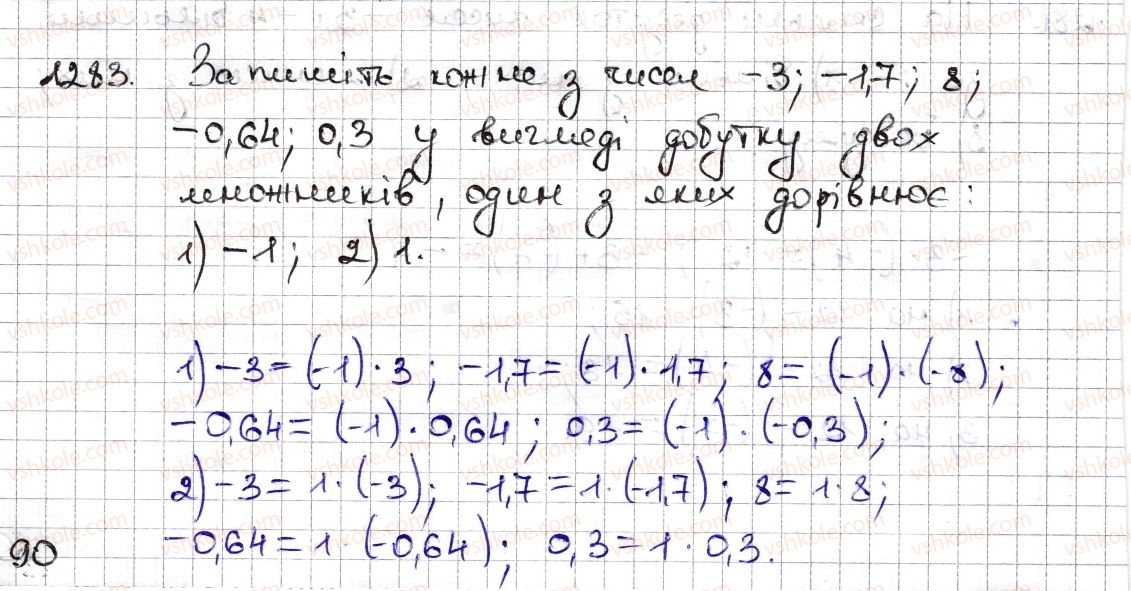 1283. Запишіть кожне з чисел -3; -1,7; 8;
-0,64; 0,3 у вигляді добутку двох
множників, один з яких дорівнює:
1) -1; 2) 1.
1) -3 = (-1) · 3; -1,7 = (-1) · 1,7; 8 = (-1) · (-8);
-0,64 = (-1) · 0,64; 0,3 = (-1) · (-0,3);
2) -3 = 1 · (-3); -1,7 = 1 · (-1,7); 8 = 1 · 8;
-0,64 = 1 · (-0,64); 0,3 = 1 · 0,3.
90
vshkole.com